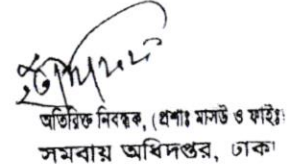 অতিরিক্ত নিবন্ধক, (প্রশাঃ মাসউ ও ফাইঃ)
সমবায় অধিদপ্তর, ঢাকা